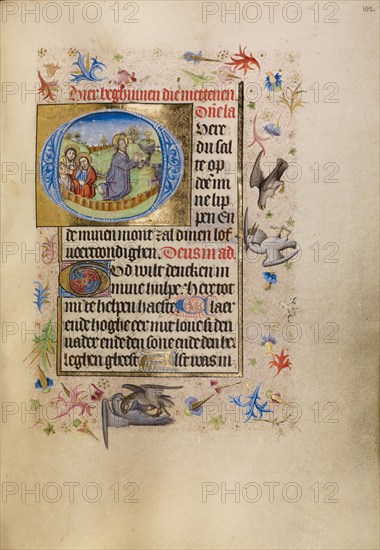 102
Hier beghinnen die mettenen.
Dñe la
Here
du sal
te op
doe mi
ne lip
pen En
de minen mont zal dinen lof
voercondighen. Deus in ad.
God wilt dencken in
mine hulpe. Here tot
mi de helpen haeste
ende hoghe eer
nader ende den sone ende den he
leghen gheest. Alst was in
PHOTO12